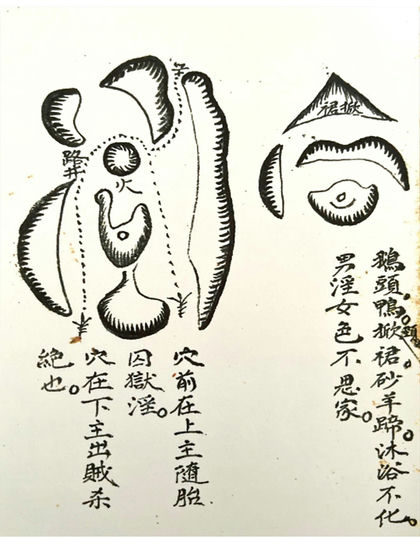 掀裙
鵝頭鴨頸掀裙砂羊蹄沐浴不化。
男淫女色不思家。
路井
火
穴前在上主隨胎
囚獄淫。
穴在下主出賊杀
絕也。